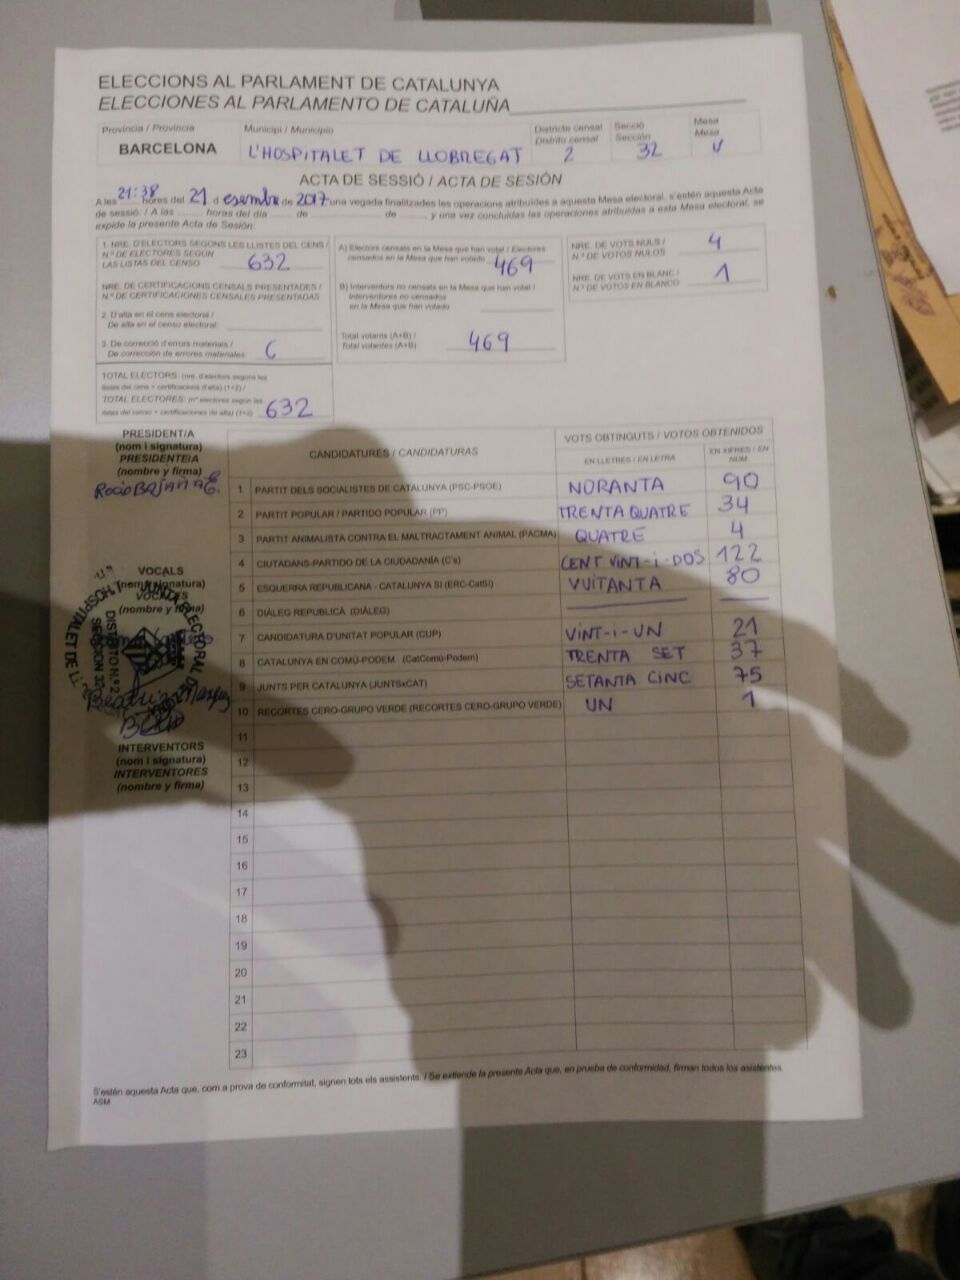 ELECCIONS AL PARLAMENT DE CATALUNYA
ELECCIONES AL PARLAMENTO DE CATALUÑA
Província / Provincia
BARCELONA
Municipi / Municipio
L'HOSPITALET DE LLOBREGAT
Districte censal
Distrito censal
2
Secció
Sección
32
Mesa
Mesa
U
ACTA DE SESSIÓ / ACTA DE SESIÓN
A les 21:38 hores del 21 d esembre de 2017 una vegada finalitzades les operacions atribuïdes a aquesta Mesa electoral, s'estén aquesta Acta
de sessió: / A las ........ horas del día ........ de ........ de ........ y una vez concluidas las operaciones atribuidas a esta Mesa electoral, se
expide la presente Acta de Sesión:
1. NRE. D'ELECTORS SEGONS LES LLISTES DEL CENS /
N.º DE ELECTORES SEGÚN
LAS LISTAS DEL CENSO 632
NRE. DE CERTIFICACIONS CENSALS PRESENTADES /
N.º DE CERTIFICACIONES CENSALES PRESENTADAS
2. D'alta en el cens electoral /
De alta en el censo electoral:
3. De correcció d'errors materials /
De corrección de errores materiales:
TOTAL ELECTORS: (nre. d'electors segons les
llistes del cens + certificacions d'alta) (1+2) /
TOTAL ELECTORES: (nº electores según las
listas del censo + certificaciones de alta) (1+2) 632
A) Electors censats en la Mesa que han votat / Electores
censados en la Mesa que han votado 469
B) Interventors no censats en la Mesa que han votat /
Interventores no censados
en la Mesa que han votado
Total votants (A+B) /
Total votantes (A+B) 469
NRE. DE VOTS NULS /
N.º DE VOTOS NULOS 4
NRE. DE VOTS EN BLANC /
N.º DE VOTOS EN BLANCO 1
PRESIDENT/A
(nom i signatura)
PRESIDENTE/A
(nombre y firma)
VOCALS
(nom i signatura)
VOCALES
(nombre y firma)
JUNTA ELECTORAL DE
DISTRITO N.º 2
SECCION 32
INTERVENTORS
(nom i signatura)
INTERVENTORES
(nombre y firma)
CANDIDATURES / CANDIDATURAS
VOTS OBTINGUTS / VOTOS OBTENIDOS
EN LLETRES / EN LETRA
EN XIFRES / EN
NÚM.
1 PARTIT DELS SOCIALISTES DE CATALUNYA (PSC-PSOE) NORANTA 90
2 PARTIT POPULAR / PARTIDO POPULAR (PP) TRENTA QUATRE 34
3 PARTIT ANIMALISTA CONTRA EL MALTRACTAMENT ANIMAL (PACMA) QUATRE 4
4 CIUTADANS-PARTIDO DE LA CIUDADANÍA (C's) CENT VINT-I-DOS 122
5 ESQUERRA REPUBLICANA - CATALUNYA SÍ (ERC-CatSí) VUITANTA 80
6 DIÀLEG REPUBLICÀ (DIÀLEG)
7 CANDIDATURA D'UNITAT POPULAR (CUP) VINT-I-UN 21
8 CATALUNYA EN COMÚ-PODEM (CatComú-Podem) TRENTA SET 37
9 JUNTS PER CATALUNYA (JUNTSxCAT) SETANTA CINC 75
10 RECORTES CERO-GRUPO VERDE (RECORTES CERO-GRUPO VERDE) UN 1
11
12
13
14
15
16
17
18
19
20
21
22
23
S'estén aquesta Acta que, com a prova de conformitat, signen tots els assistents. / Se extiende la presente Acta que, en prueba de conformidad, firman todos los asistentes.
ASM